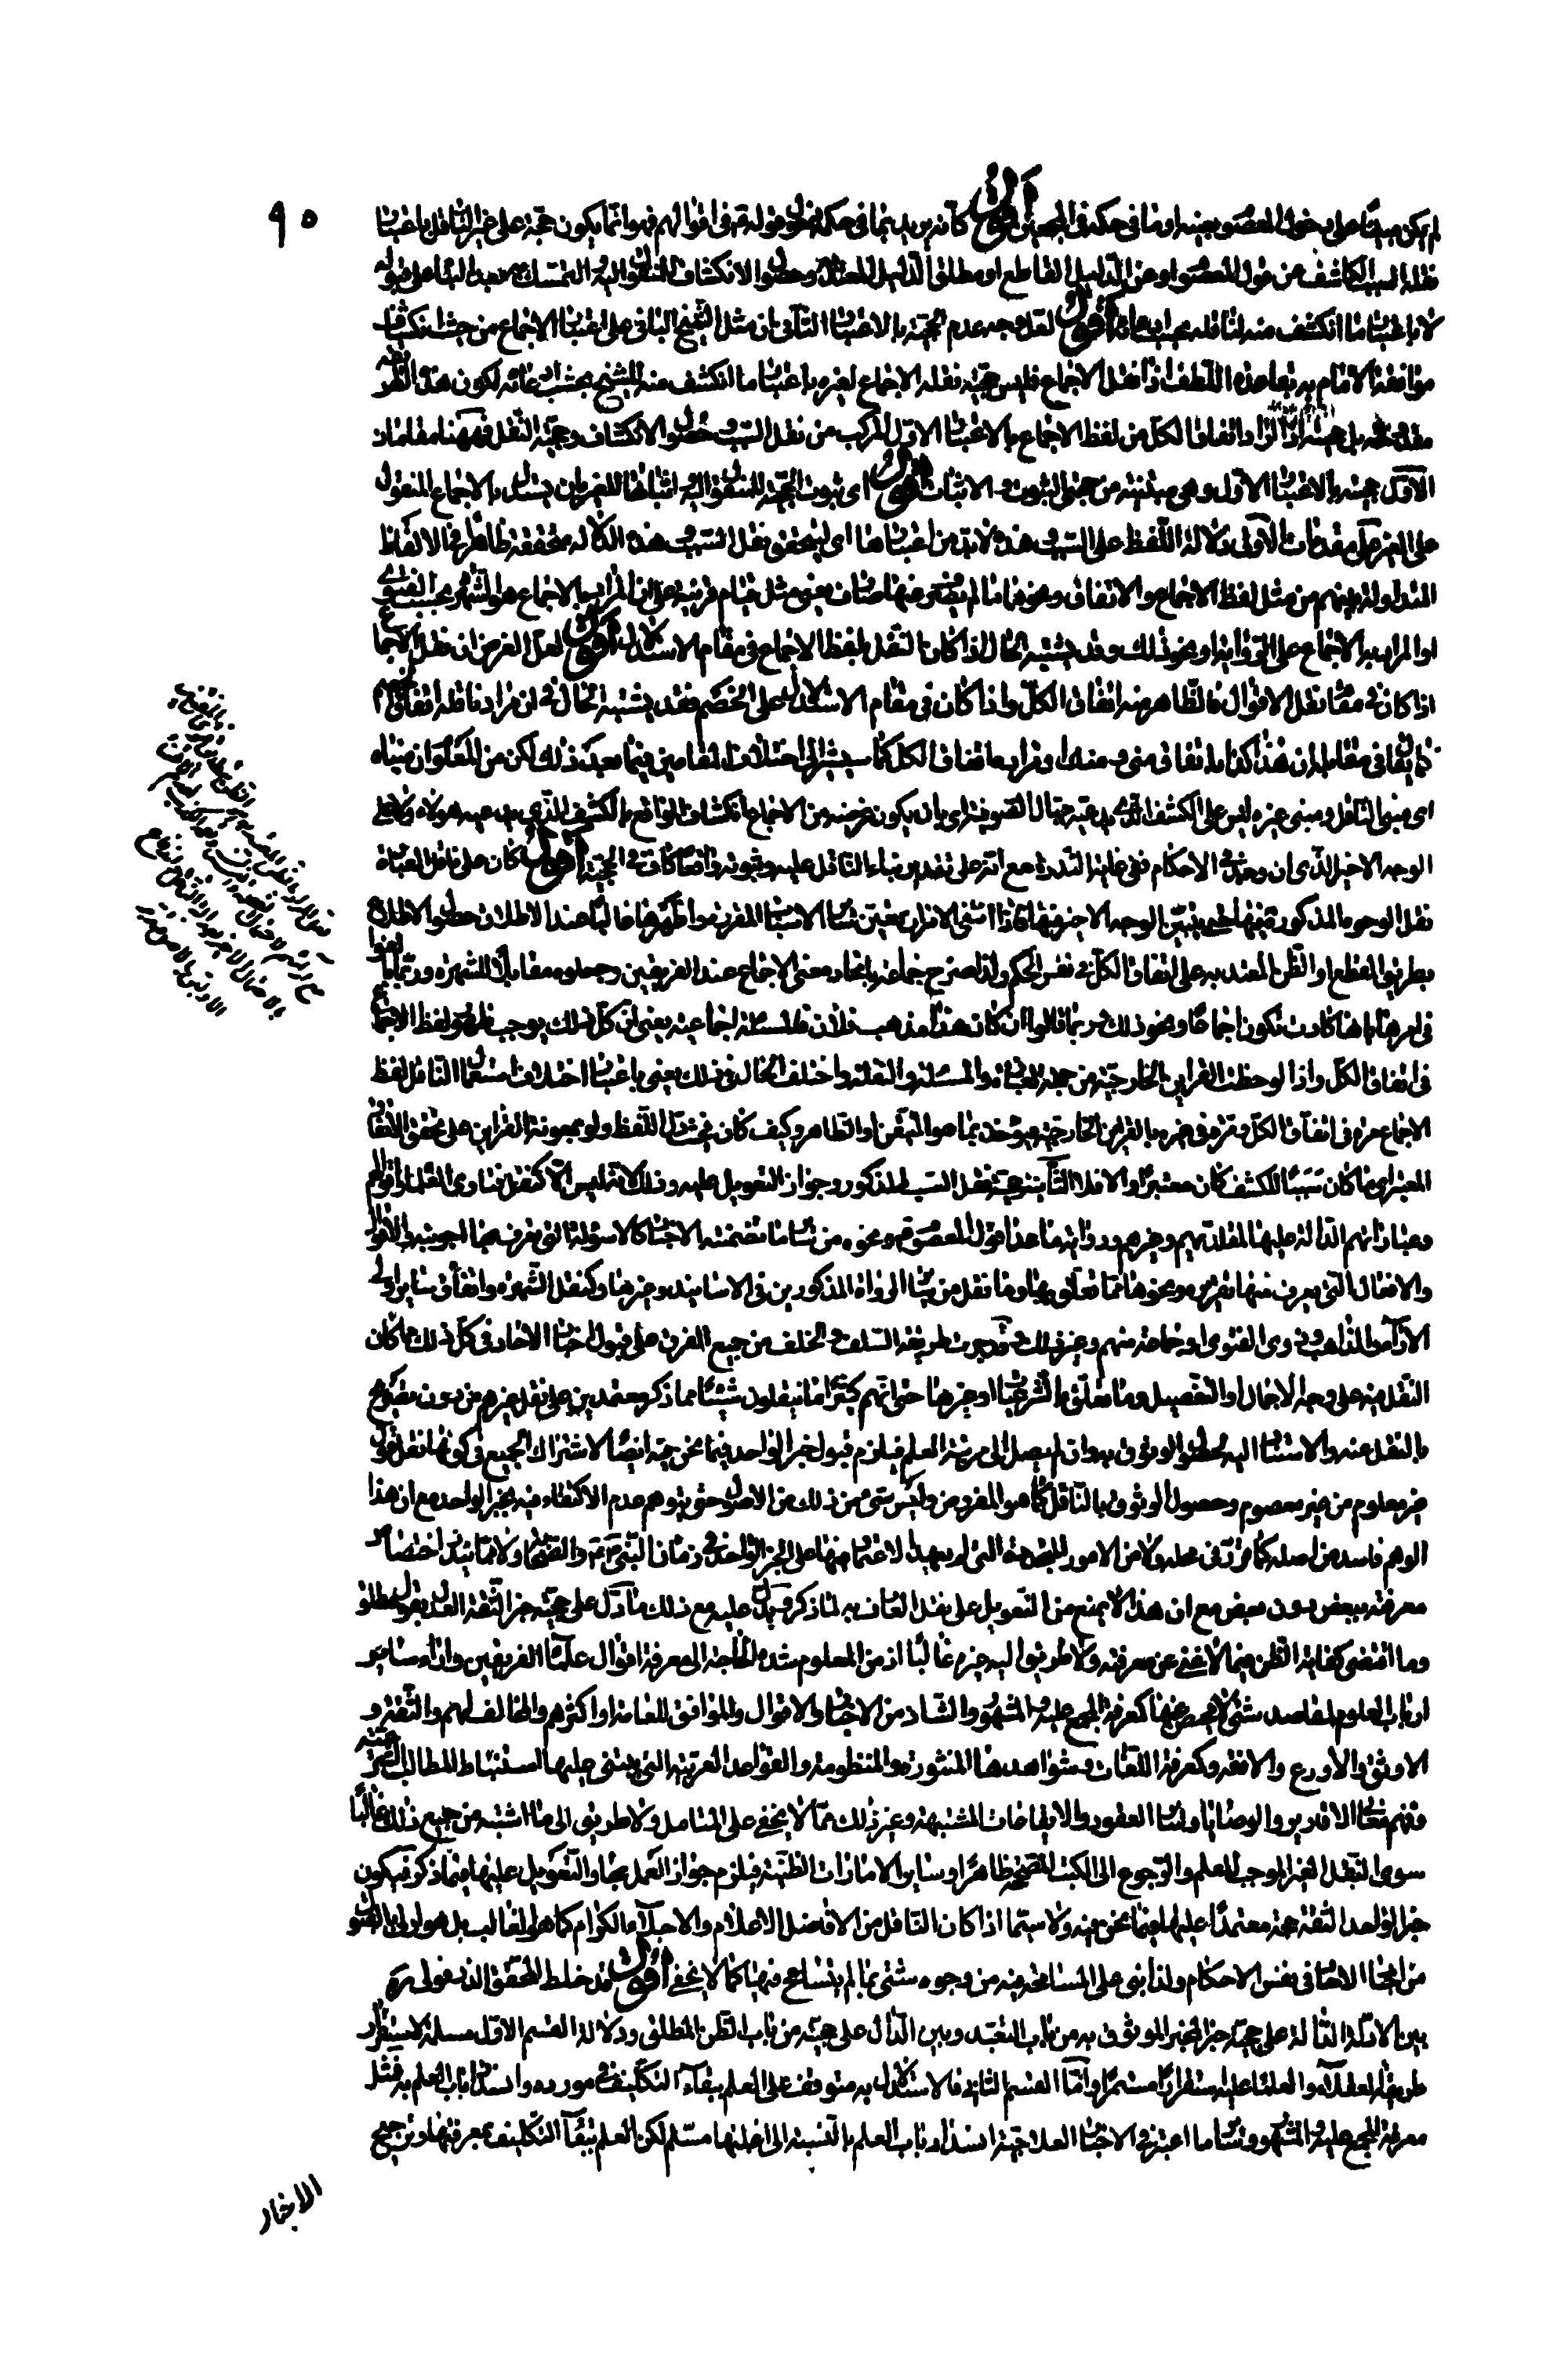 ٩٥
لم يكن مبنيّا على دخول المعصوم بعينه او ما فى حكمه فى الحجيّة اقول كانّه يريد بما فى حكمه دخول قوله فى اقوالهم فهو انّما يكون حجّة على غير الناقل باعتبار
نقله السبب الكاشف عن قول المعصوم او عن الدليل القاطع او مطلق الدليل المعتدّ به وحصول الانكشاف للمنقول اليه المتمسّك به بعد البناء على قبوله
لا باعتبار ما انكشف منه لناقله بحسب ادعائه اقول لعلّ وجه عدم الحجيّة بالاعتبار الثانى ان مثل الشيخ البانى على اعتبار الاجماع من حيث انكشاف
موافقة الامام به بقاعدة اللطف اذا نقل الاجماع فليس حجيّة نقله الاجماع لغيره باعتبار ما انكشف منه للشيخ بحسب ادعائه لكون هذا النظر
اتفاق الكل من لفظ الاجماع بالاعتبار الاول المركب من نقل السبب وحصول الانكشاف وحجيّة النقل فههنا مقامان
الاوّل حجيته بالاعتبار الاوّل وهى مبتنية من جهتى الثبوت والاثبات اقول اى ثبوت الحجيّة للمنقول اليه واثباتها للغير بان يستدل بالاجماع المنقول
على الغير على مقدمات الاولى دلالة اللفظ على السبب وهذه لا بدّ من اعتبارها اى ليتحقق نقل السبب وهذه الدلالة متحققة ظاهرا فى الالفاظ
المتداولة بينهم من مثل لفظ الاجماع والاتفاق ونحوهما ما لم يصرف عنها صارف يعنى مثل قيام قرينة على ان المراد بالاجماع هو الشهرة بحسب الفتوى
او المراد به الاجماع على الرواية او نحو ذلك وقد يشتبه الحال اذا كان النقل بلفظ الاجماع فى مقام الاستدلال اقول لعلّ الغرض ان نقل الاجماع
اذا كان فى مقام نقل الاقوال فالظاهر منه اتفاق الكلّ واذا كان فى مقام الاستدلال على الخصم فقد يشتبه الحال فى ان مراد ناقله اتفاق الكل
كما يقال فى مقابل ان هذا كذا باتفاق منى ومنك او مراده اتفاق الكل كما سيشير الى اختلاف المقامين فيما بعد ذلك لكن من المعلوم ان مبناه
اى مبنى الناقل ومبنى غيره ليس على الكشف الذى يدعيه جهّال الصوفية اى بان يكون غرضه من الاجماع انكشاف الواقع بالكشف الذى يدعيه هؤلاء ولا على
الوجه الاخير الذى ان وجد فى الاحكام ففى غاية الندرة مع انّه على تقدير بناء الناقل عليه وثبوته واقعا كاف فى الحجيّة اقول كان على ناقل العبارة
نقل الوجوه المذكورة فيها حتى يتبيّن الوجه الاخير منها فاذا انتفى الامران تعيّن سائر الاسباب المقررة واظهرها غالبا عند الاطلاق حصول الاطلاع
بطريق القطع او الظن المعتد به على اتفاق الكل فى نفس الحكم ولذا صرّح جماعة باتحاد معنى الاجماع عند الفريقين وجعلوه مقابلا للشهرة وربّما بالغوا
فى امرها بانها كادت تكون اجماعا ونحو ذلك وربما قالوا ان كان هذا مذهب فلان فالمسئلة اجماعية يعنى ان كلّ ذلك يوجب ظهور لفظ الاجماع
فى اتفاق الكلّ واذا لوحظت القراين الخارجيّة من جهة العبارة والمسئلة والنقلة واختلف الحال فى ذلك يعنى باعتبار اختلاف استعمال الناقل لفظ
الاجماع مرة فى اتفاق الكلّ ومرة فى غيره بالقراين الخارجيّة فيؤخذ بما هو المتيقن او الظاهر وكيف كان فحيث دل اللفظ ولو بمعونة القراين على تحقق الاتفاق
المعتبر اى ما كان سببا للكشف كان معتبرا والا فلا الثانية حجيّة نقل السبب المذكور وجواز التعويل عليه وذلك لانّه ليس الا كنقل فتاوى العلماء واقوالهم
وعباراتهم الدالة عليها لمقلديهم وغيرهم ورواية ما عدا قول المعصوم ونحوه من سائر ما تضمنته الاخبار كالاسئولة التى يعرف منها اجوبته والاقوال
والافعال التى يعرف منها تقريره ونحوها مما تعلّق بها وما نقل من ساير الرواة المذكورين فى الاسانيد وغيرها وكنقل الشهرة واتفاق ساير اولى
الاراء والمذاهب وذوى الفتوى او جماعة منهم وغير ذلك وقد جرت طريقة السلف والخلف من جميع الفرق على قبول اخبار الاحاد فى كل ذلك مما كان
النقل فيه على وجه الاجمال او التفصيل وما تعلّق بالشرعيات او غيرها حتى انهم كثيرا ما ينقلون شيئا مما ذكر معتمدين على نقل غيرهم من دون تصريح
بالنقل عنه والاستناد اليه لحصول الوثوق به وان لم يصل الى مرتبة العلم فيلزم قبول خبر الواحد فيما نحن فيه ايضا لاشتراك الجميع فى كونها نقل قول
غير معلوم من غير معصوم وحصول الوثوق بالناقل كما هو المفروض وليس شىء من ذلك من الاصول حتى يتوهم عدم الاكتفاء فيه بخبر الواحد مع ان هذا
الوهم فاسد من اصله كما قرّر فى محله ولا من الامور المتجددة التى لم يعهد الاعتماد فيها على الخبر الواحد فى زمان النبى والائمة والصحابة ولا مما يندر اختصاص
معرفته ببعض دون بعض مع ان هذا لا يمنع من التعويل على نقل العارف به لما ذكر ويدل عليه مع ذلك ما دلّ على حجيّة خبر الثقة العدل بقول مطلق
وما اقتضى كفاية الظن فيما لا غنى عن معرفته ولا طريق اليه غيره غالبا اذ من المعلوم شدة الحاجة الى معرفة اقوال علماء الفريقين واراء ساير
ارباب العلوم لمقاصد شتى لا محيص عنها كمعرفة المجمع عليه والمشهور والشاذ من الاخبار والاقوال والموافق للعامة او اكثرهم والمخالف لهم والثقة و
الاوثق والاورع والافقه وكمعرفة اللغات وشواهدها المنثورة والمنظومة والقواعد العربية التى يبتنى عليها استنباط المطالب الشرعيّة
وفهم معانى الاقارير والوصايا وسائر العقود والايقاعات المشتبهة وغير ذلك ممّا لا يخفى على المتامل ولا طريق الى ما اشتبه من جميع ذلك غالبا
سوى النقل الغير الموجب للعلم والرجوع الى الكتب المصحّحة ظاهرا وساير الامارات الظنّية فيلزم جواز العمل بها والتعويل عليها فيما ذكر فيكون
خبر الواحد الثقة حجة معتمدا عليها فيما نحن فيه ولا سيّما اذا كان الناقل من الافاضل الاعلام والاجلاء الكرام كما هو الغالب بل هو اولى بالقبول
من اخبار الاحاد فى نفس الاحكام ولذا بنى على المسامحة فيه من وجوه شتى بما لم يتسامح فيها كما لا يخفى اقول قد خلط المحقق الدزفولى ره
بين الادلة الدالة على حجيّة خبر المخبر الموثوق به من باب التعبّد وبين الدّال على حجيته من باب الظن المطلق ودلالة القسم الاول مسلمة لاستقرار
طريقة العقلاء والعلماء عليه استقرارا مستمرا وامّا القسم الثانى فالاستدلال به متوقف على العلم ببقاء التكليف فى مورده وانسداد باب العلم به فمثل
معرفة المجمع عليه والمشهور وساير ما اعتبر فى الاخبار العلاجيّة انسداد باب العلم بالنسبة الى اغلبها مسلّم لكن العلم ببقاء التكليف بمعرفتها وترجيح
الاخبار